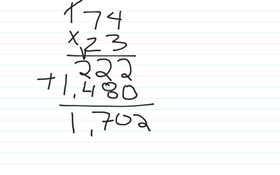 1
74
x 23
222
+ 1,480
1,702